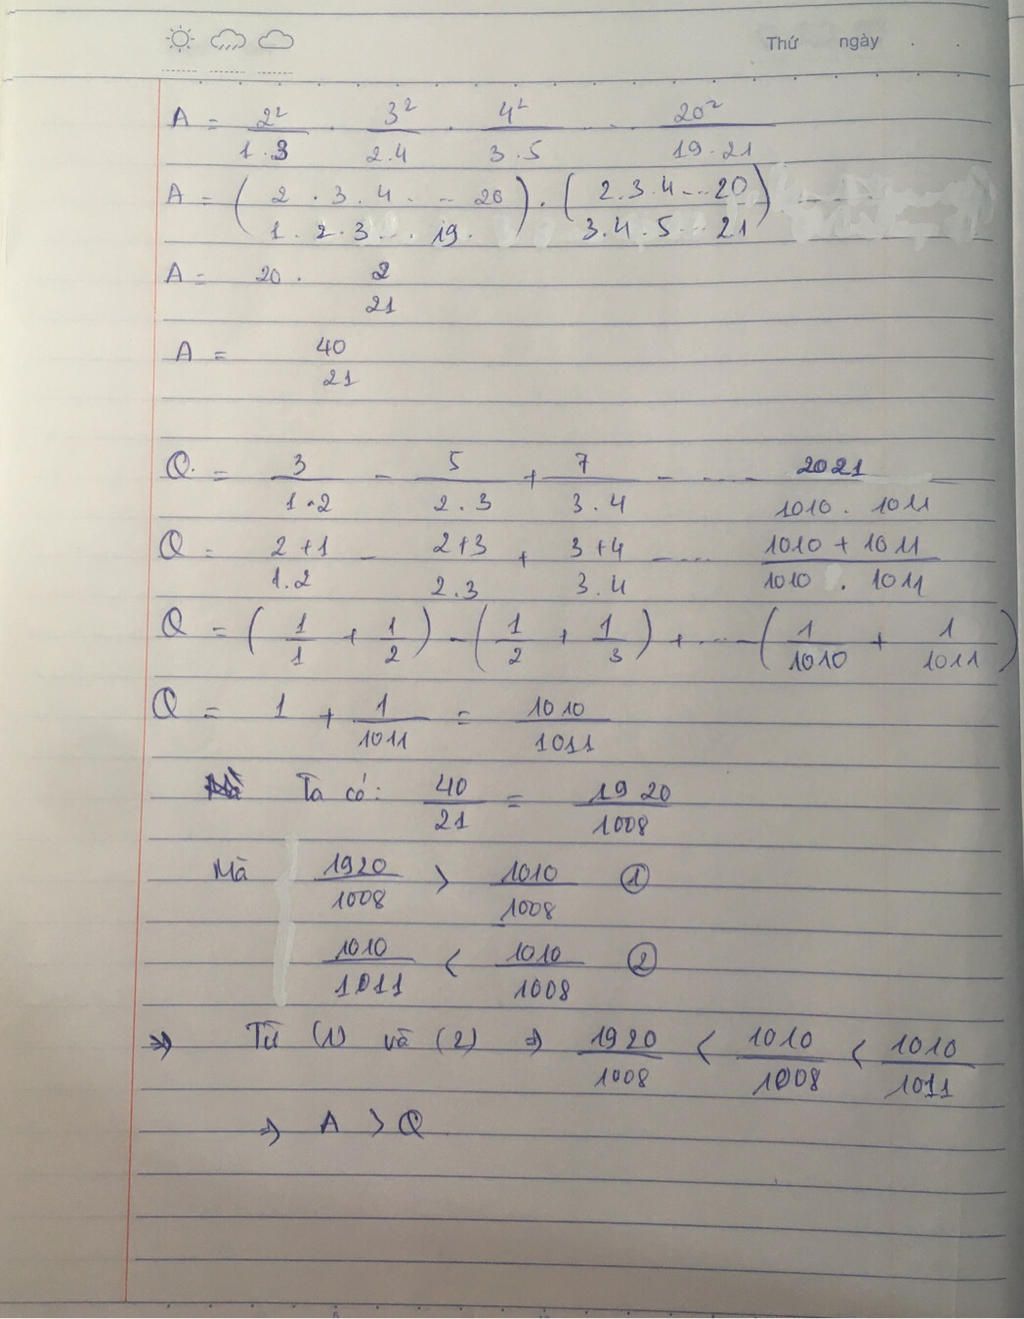 Thứ ngày . .
A = 2²/1.3 . 3²/2.4 . 4²/3.5 ... 20²/19.21
A = (2.3.4. ... 20/1.2.3... 19.) . (2.3.4...20/3.4.5...21)
A = 20 . 2/21
A = 40/21
Q = 3/1.2 - 5/2.3 + 7/3.4 - .... - 2021/1010.1011
Q = 2+1/1.2 - 2+3/2.3 + 3+4/3.4 - .... 1010+1011/1010.1011
Q = (1/1 + 1/2) - (1/2 + 1/3) + ... - (1/1010 + 1/1011)
Q = 1 + 1/1011 = 1010/1011
Ta có: 40/21 = 1920/1008
Mà 1920/1008 > 1010/1008 ①
1010/1011 < 1010/1008 ②
=> Từ (1) và (2) => 1920/1008 < 1010/1008 < 1010/1011
=> A > Q